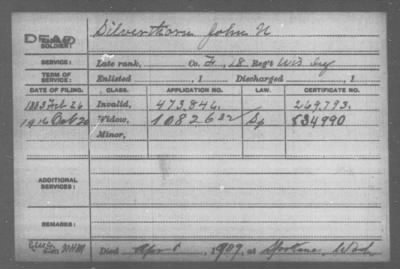 DEAD
SOLDIER: Silverthorn John N
SERVICE: Late rank, Co. F, 18 Reg't Wis Inf
TERM OF SERVICE: Enlisted , 1 Discharged , 1
DATE OF FILING. CLASS. APPLICATION NO. LAW. CERTIFICATE NO.
1883 Feb 26 Invalid, 473,846. 269,793.
1916 Oct 20 Widow, 1082632 834990
Minor,
ADDITIONAL SERVICES:
REMARKS:
Died Apr 1909, at Spokane Wash